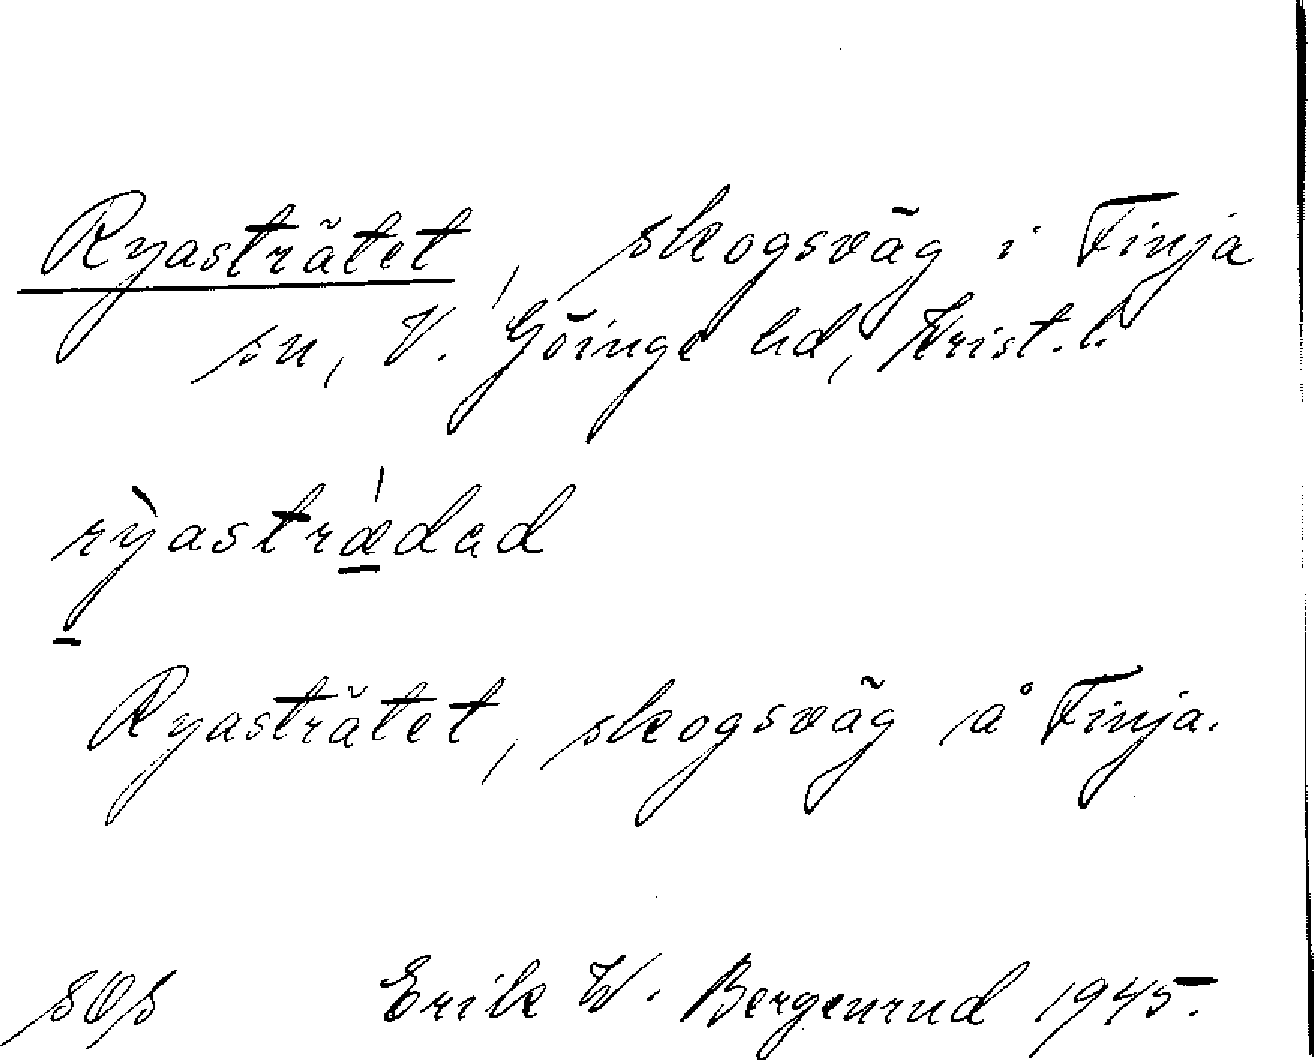 Ryasträtet, skogsväg i Finja
sn, V. Göinge hd, Krist. l.
rỳastrǽdad
Ryasträtet, skogsväg å Finja.
SOs Erik W. Bergenrud 1945.